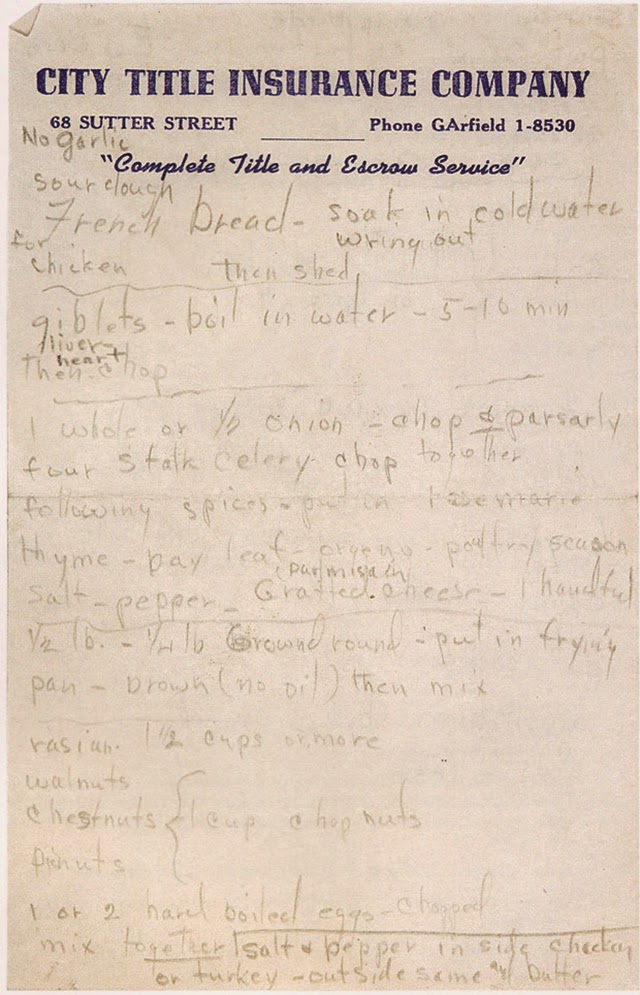 CITY TITLE INSURANCE COMPANY
68 SUTTER STREET Phone GArfield 1-8530
No garlic
"Complete Title and Escrow Service"
sourdough
French bread - soak in cold water
wring out
for
chicken then shed
giblets - boil in water - 5-10 min
liver-
heart
then chop
1 whole or 1/2 onion - chop & parsarly
four stalk celery chop together
following spices - put in rosemarie
thyme - bay leaf - oregeno - poltry season
parmisian
salt - pepper - Gratted cheese - 1 handful
1/2 lb. - 1/4 lb Ground round - put in frying
pan - brown (no oil) then mix
rasian. 1 1/2 cups or more
walnuts
chestnuts { 1 cup chop nuts
pinuts
1 or 2 hard boiled eggs - chopped
mix together salt & pepper in side chicken
or turkey - outside same butter